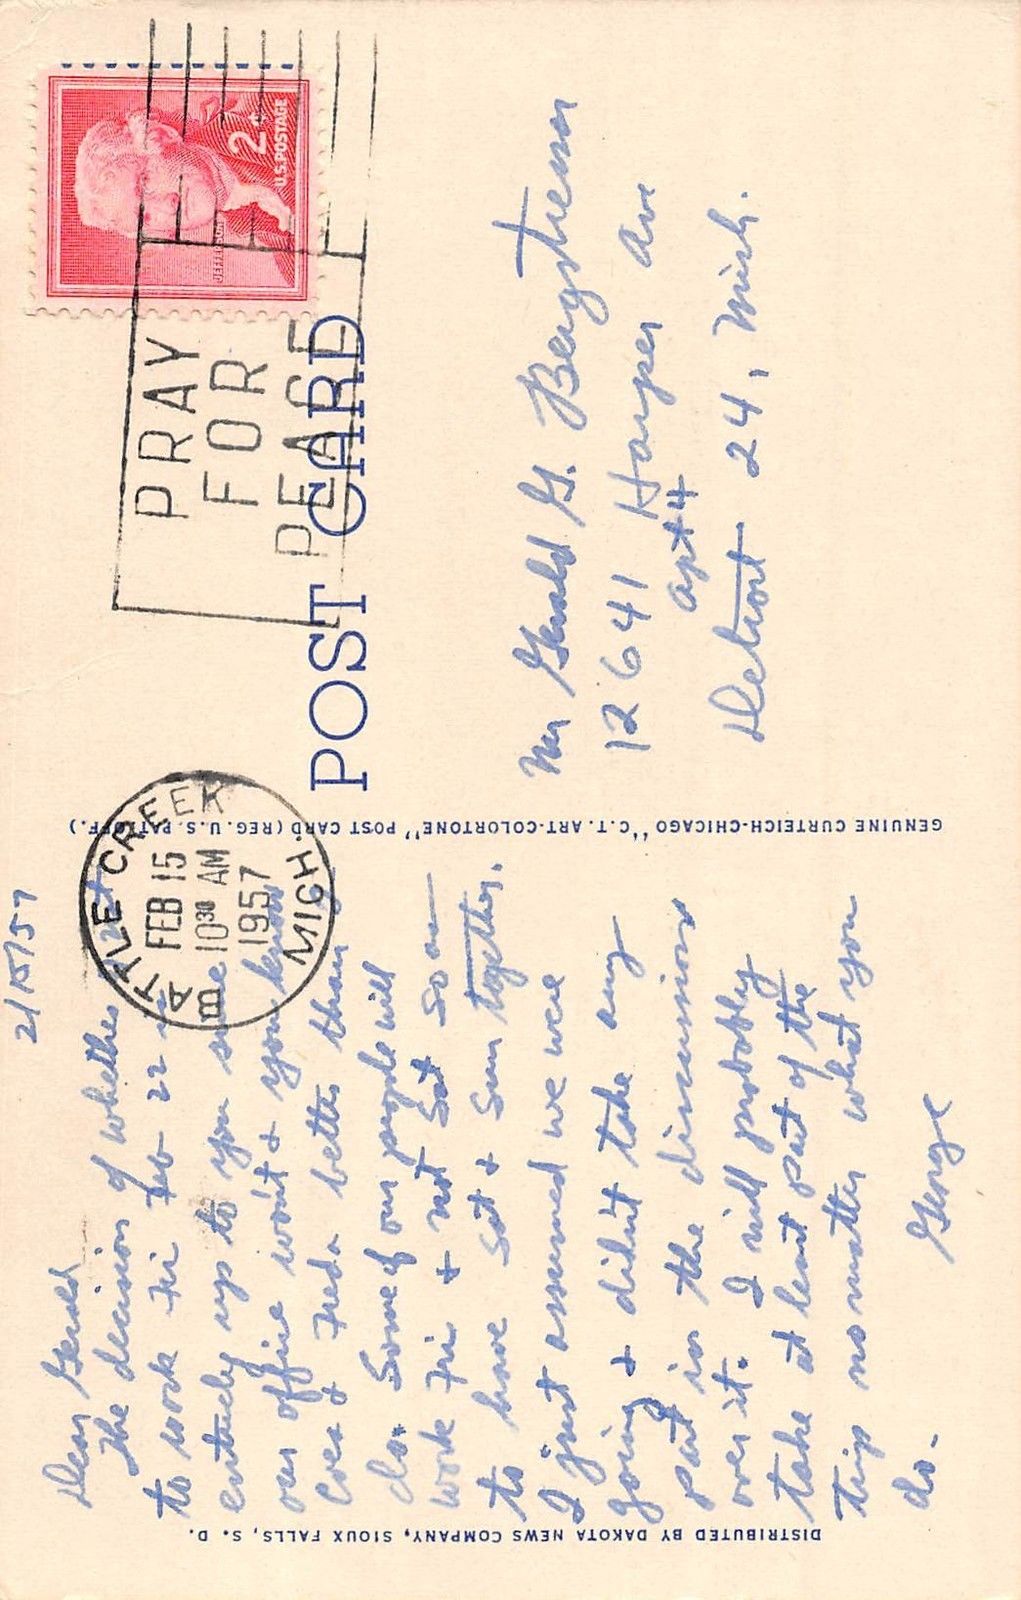 2/15/57
Dear Gerald
The decision of whether
to work Fri Feb 22 is
entirely up to you since
our office won't & you know
& Freda better than
do. Some of our people will
work Fri & not Sat so as
to have Sat & Sun together.
I just assumed we were
going & didn't take any
part in the discussions
over it. I will probably
take at least part of the
trip no matter what you
do.
George
DISTRIBUTED BY DAKOTA NEWS COMPANY, SIOUX FALLS, S. D.
GENUINE CURTEICH-CHICAGO "C.T. ART-COLORTONE" POST CARD (REG. U.S. PAT. OFF.)
BATTLE CREEK
FEB 15
10 30 AM
1957
MICH.
PRAY
FOR
PEACE
JEFFERSON
2¢
U.S. POSTAGE
POST CARD
Mr Gerald G. Bergstresser
12641 Harper Ave
apt 4
Detroit 24, Mich.